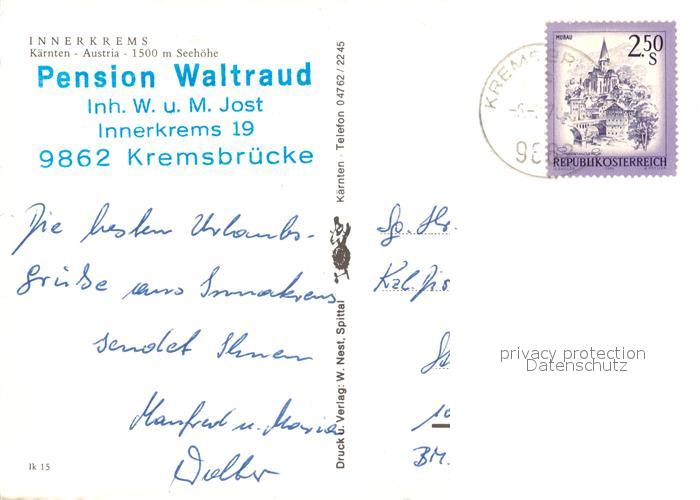 INNERKREMS
Kärnten - Austria - 1500 m Seehöhe
Pension Waltraud
Inh. W. u. M. Jost
Innerkrems 19
9862 Kremsbrücke
Die besten Urlaubs-
grüße aus Innerkrems
sendet Ihnen
Manfred u. Maria
Ik 15
Druck u. Verlag: W. Nest, Spittal
Kärnten - Telefon 04762/2245
MURAU
2.50
S
REPUBLIK ÖSTERREICH
KREMSBR
Sp.
BM.
privacy protection
Datenschutz